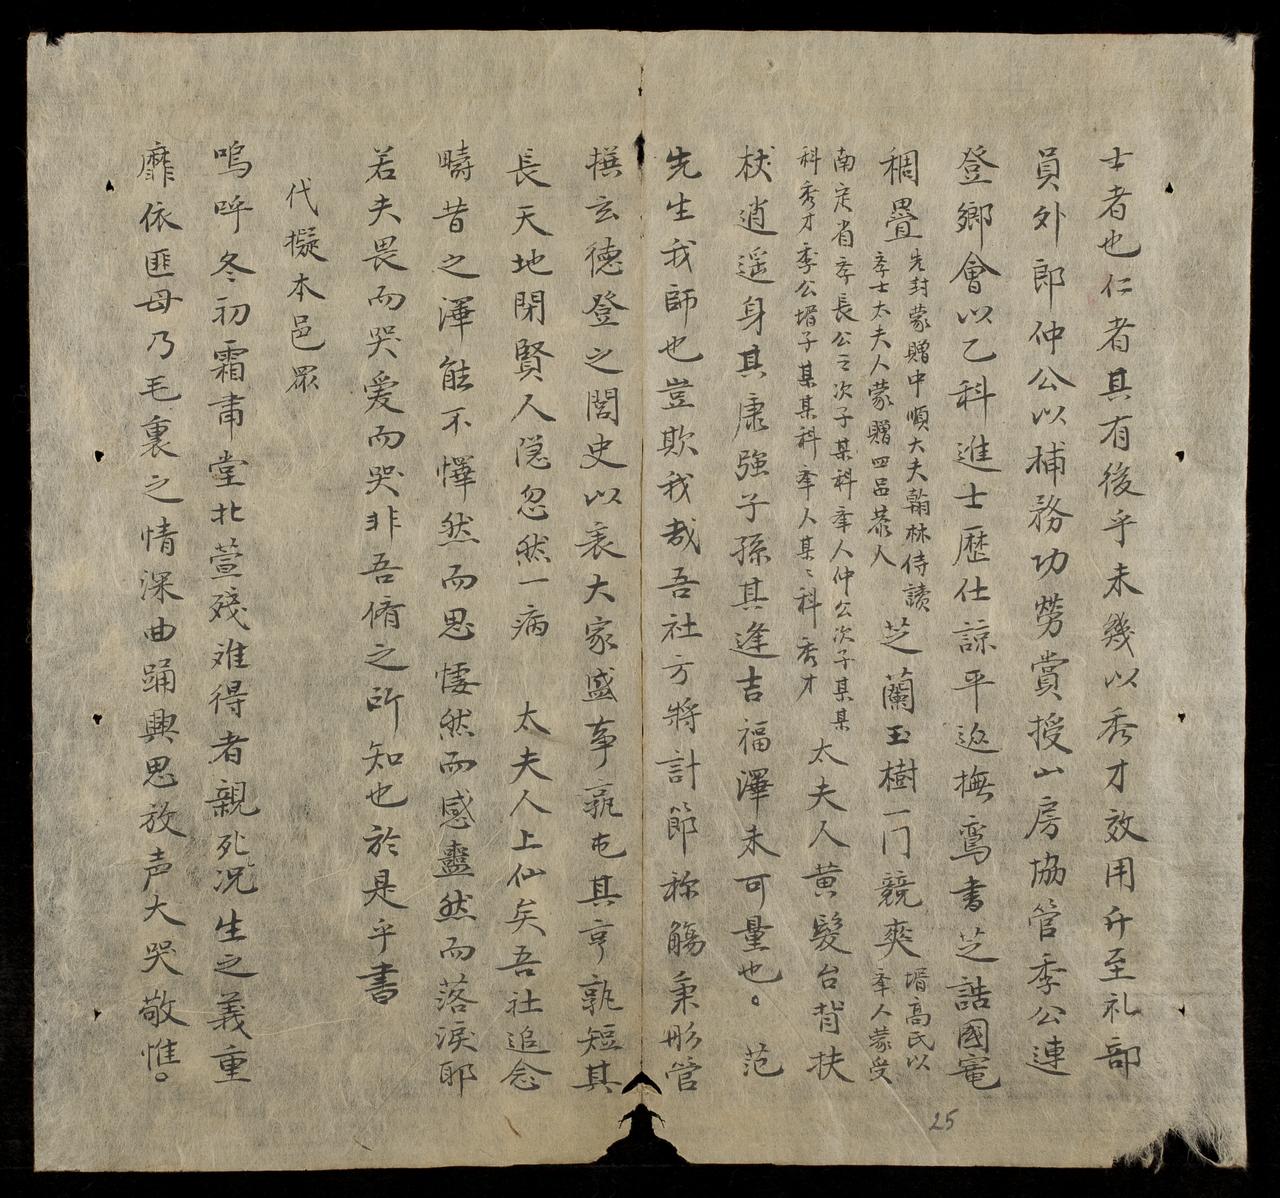 士者也仁者其有後乎未幾以秀才效用升至礼部
員外郎仲公以補務功勞賞授山房協管季公連
登鄉會以乙科進士歷仕諒平返撫鸞書芝誥國寵
稠疊
先封蒙贈中順大夫翰林侍讀
孛士太夫人蒙贈四品恭人
芝蘭玉樹一门競爽
壻高氏以
孛人蒙受
南定省孛長公之次子某科孛人仲公次子某某
科秀才季公壻子某某科孛人某〻科秀才
太夫人黃髮台背扶
杖逍遥身其康強子孫其逢吉福澤未可量也。范
先生我師也豈欺我哉吾社方將計節称觴秉彤管
撰玄德登之閭史以表大家盛事孰屯其亨孰短其
長天地閉賢人隐忽然一病 太夫人上仙矣吾社追念
疇昔之澤能不懌然而思悽然而感盡然而落淚耶
若夫畏而哭爱而哭非吾脩之所知也於是乎書
代擬本邑眾
嗚呼冬初霜肅堂北萱殘难得者親死况生之義重
靡依匪母乃毛裏之情深曲踊興思放声大哭敬惟。
25